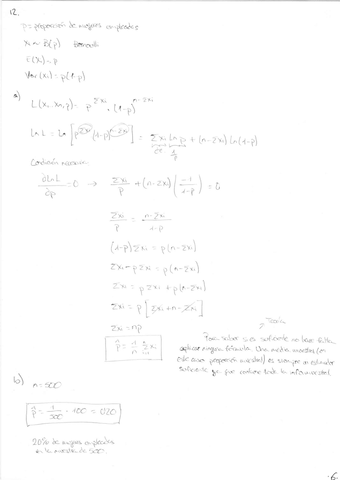 12.
p = proporción de mujeres empleadas
Xi ~ B(p) Bernoulli
E(Xi) = p
Var(Xi) = p(1-p)
a) L(x1...xn, p) = p^Σxi · (1-p)^n-Σxi
ln L = ln [p^Σxi (1-p)^n-Σxi] = Σxi ln p + (n-Σxi) ln(1-p)
Condición necesaria:
∂lnL/∂p = 0 → Σxi/p + (n-Σxi) (-1/1-p) = 0
Σxi/p = n-Σxi/1-p
(1-p) Σxi = p(n-Σxi)
Σxi - pΣxi = p(n-Σxi)
Σxi = pΣxi + p(n-Σxi)
Σxi = p [Σxi + n - Σxi]
Σxi = np
p̂ = 1/n Σxi
Para saber si es suficiente no hace falta
aplicar ninguna fórmula. Una media muestral (en
este caso proporción muestral) es siempre un estimador
suficiente ya que contiene toda la info muestral
b) n = 500
p̂ = 1/500 · 100 = 0,20
20% de mujeres empleadas
en la muestra de 500.
6